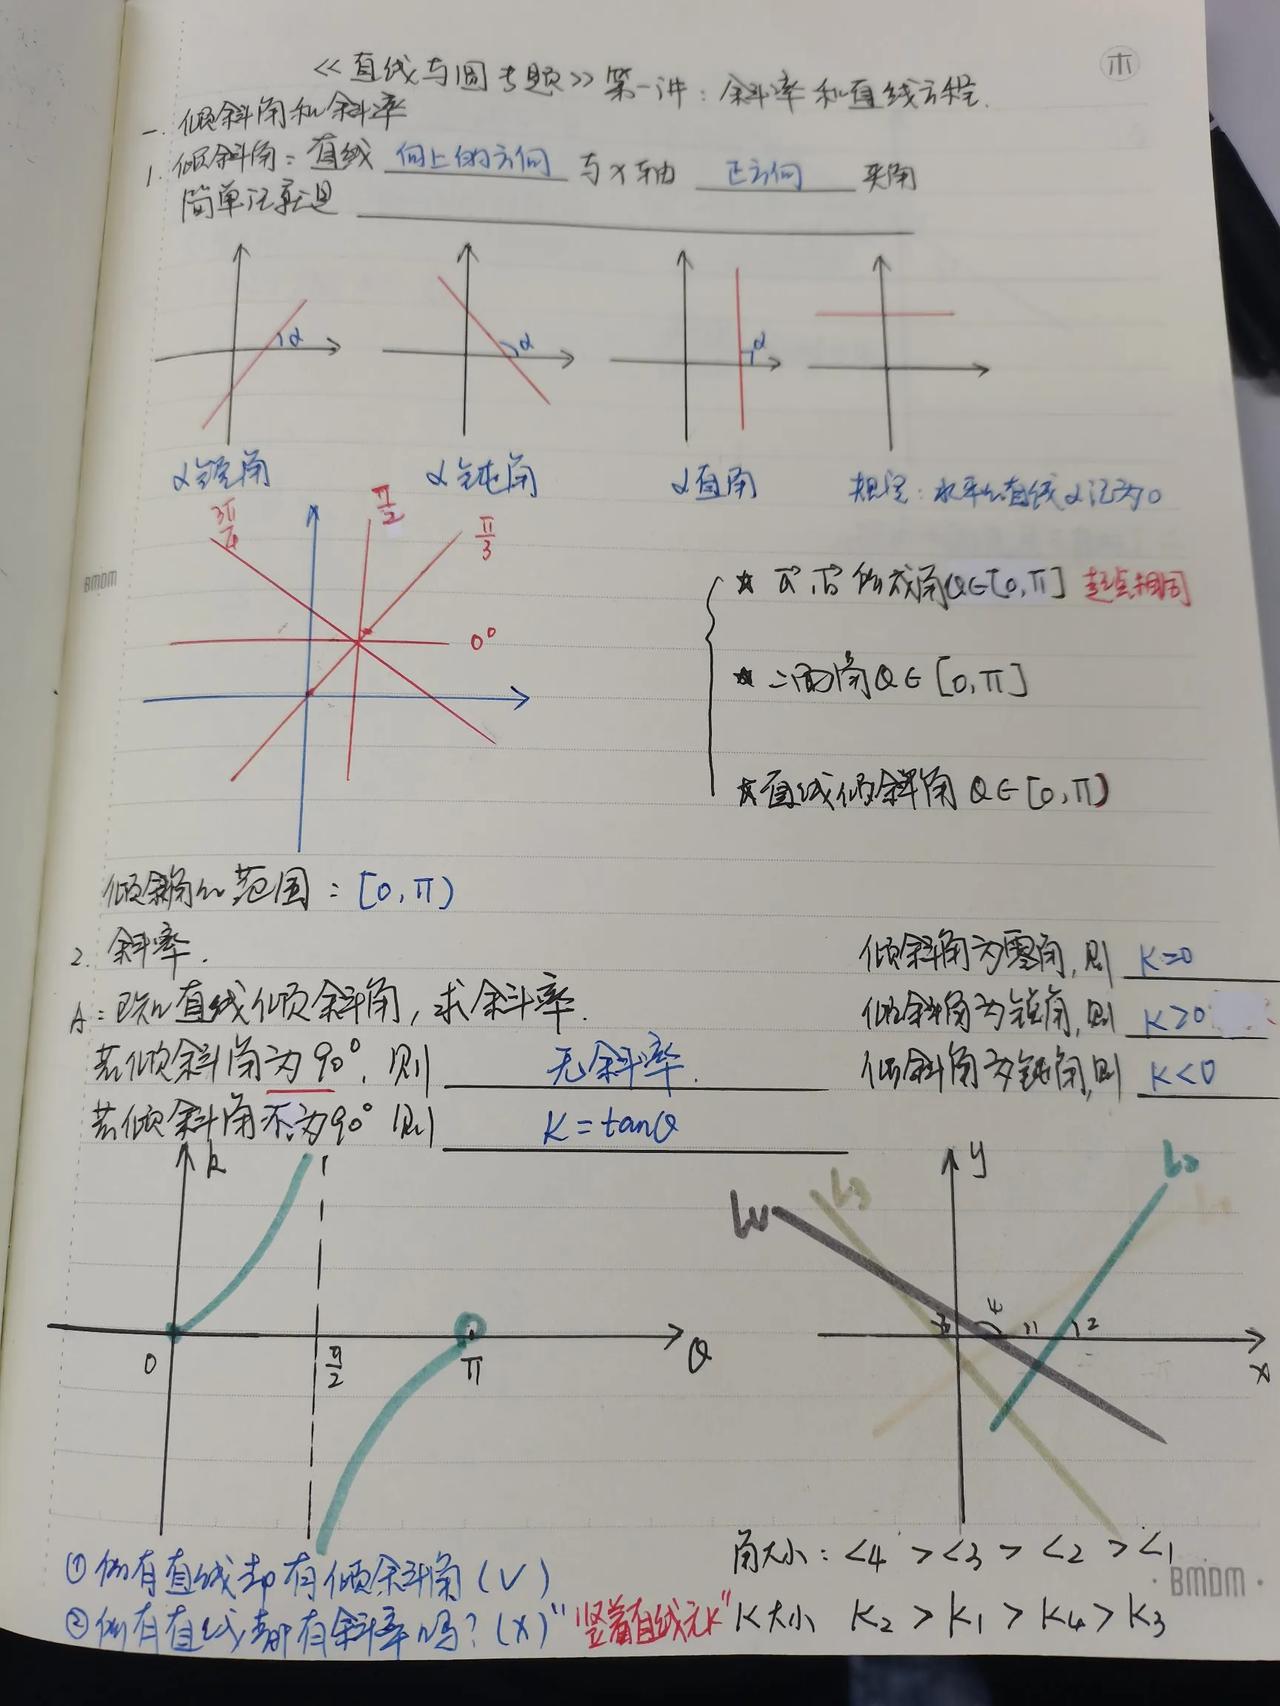 木
《直线与圆专题》第一讲：斜率和直线方程.
一. 倾斜角和斜率
1. 倾斜角：直线 向上的方向 与x轴 正方向 夹角
简单记就是
α α α
α锐角 α钝角 α直角 规定：水平的直线α记为0
3π/4 π/2 π/3
0°
★ a⃗,b⃗所成角θ∈[0,π] 起点相同
★ 二面角θ∈[0,π]
★ 直线倾斜角θ∈[0,π)
BMDM
倾斜角的范围：[0,π)
2. 斜率.
A：已知直线倾斜角,求斜率.
若倾斜角为90°,则 无斜率.
若倾斜角不为90°则 K=tanθ
倾斜角为零角,则 K=0
倾斜角为锐角,则 K>0
倾斜角为钝角,则 K<0
k
0 π/2 π θ
y
L4 L3 L2
3 4 1 2
x
①所有直线都有倾斜角(√)
②所有直线都有斜率吗?(×)"竖着直线无K"
角大小：∠4>∠3>∠2>∠1
K大小 K2>K1>K4>K3
BMDM